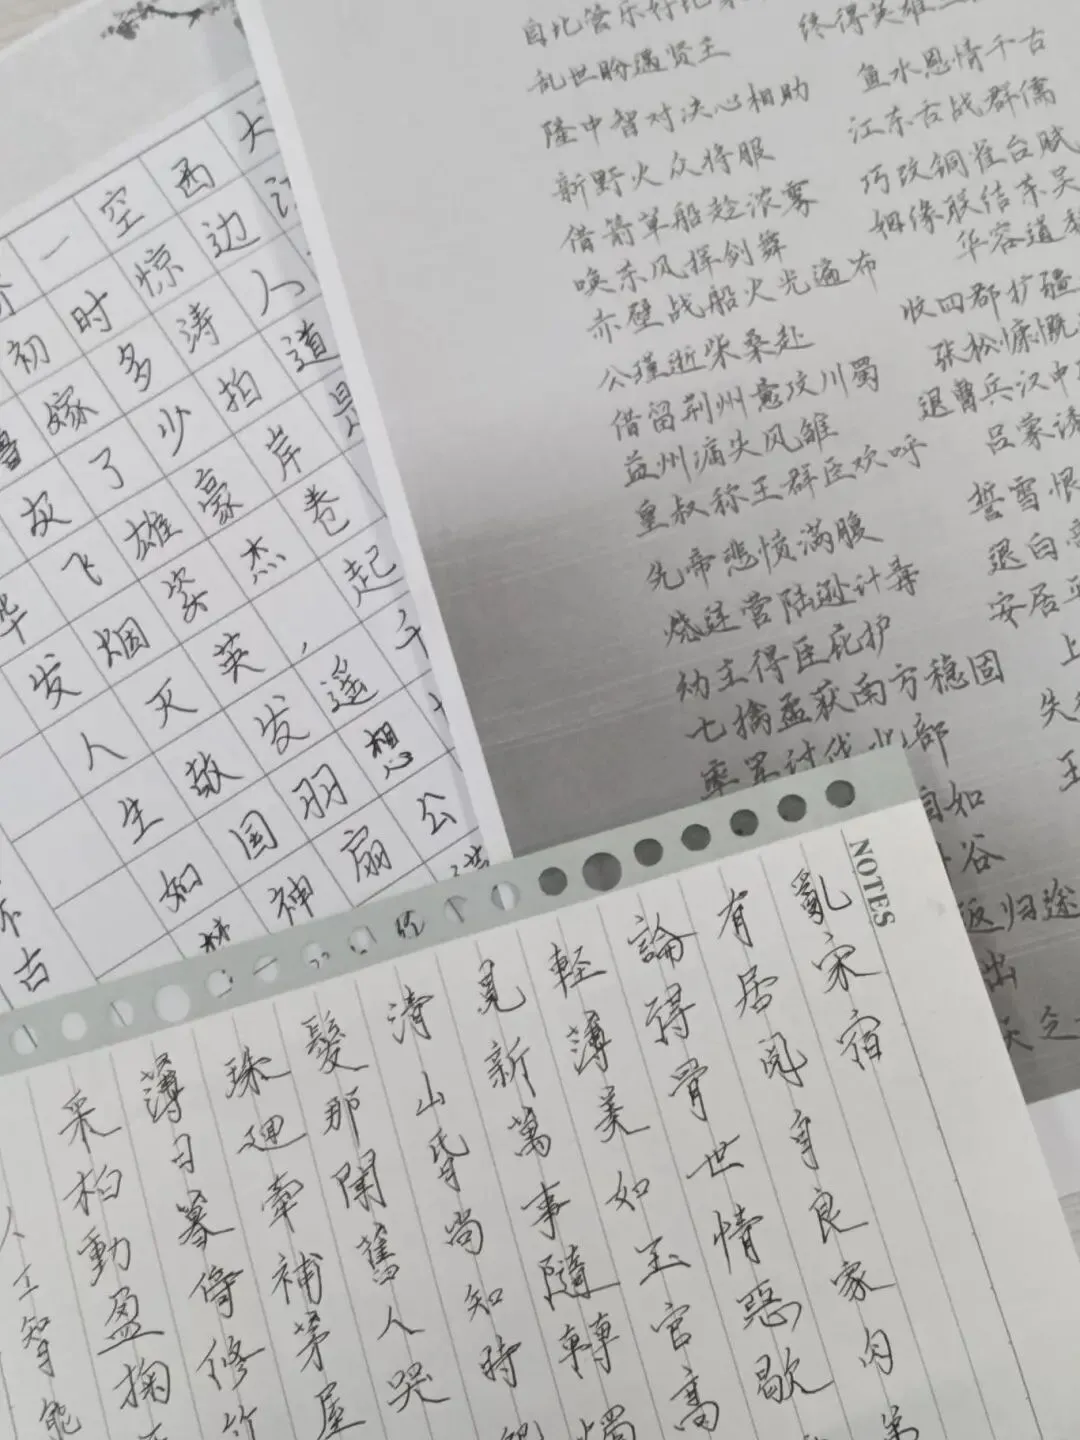 大江
西边人道是
空惊涛拍岸卷起千
一时多少豪杰，遥想公
初嫁了雄姿英发羽扇
故飞烟灭故国神
华发人生如
古
乱世盼遇贤主 鱼水恩情千古
隆中智对决心相助 江东舌战群儒
新野火众将服 巧改铜雀台赋
借箭草船趁浓雾 姻缘联结东吴
唤东风挥剑舞 华容道
赤壁战船火光遍布 收四郡扩疆
公瑾逝柴桑赴 张松慷慨
借留荆州意攻川蜀 退曹兵汉中
益州痛失凤雏 吕蒙
皇叔称王群臣欢呼 誓雪恨
先帝悲愤满腹 退白帝
烧连营陆逊计毒 安居平
幼主得臣庇护 上
七擒孟获南方稳固 失
率军讨伐北部 王
自如
谷
返归途
出
天之
NOTES
亂宋宿
有居間自良家内第
論得骨世情惡歇
輕薄美如玉官高
見新萬事隨轉燭
清山昏尚知時
髮那聞舊人哭
珠迴牽補茅屋
薄日暮倚修竹
采柏動盈掬
人工智能